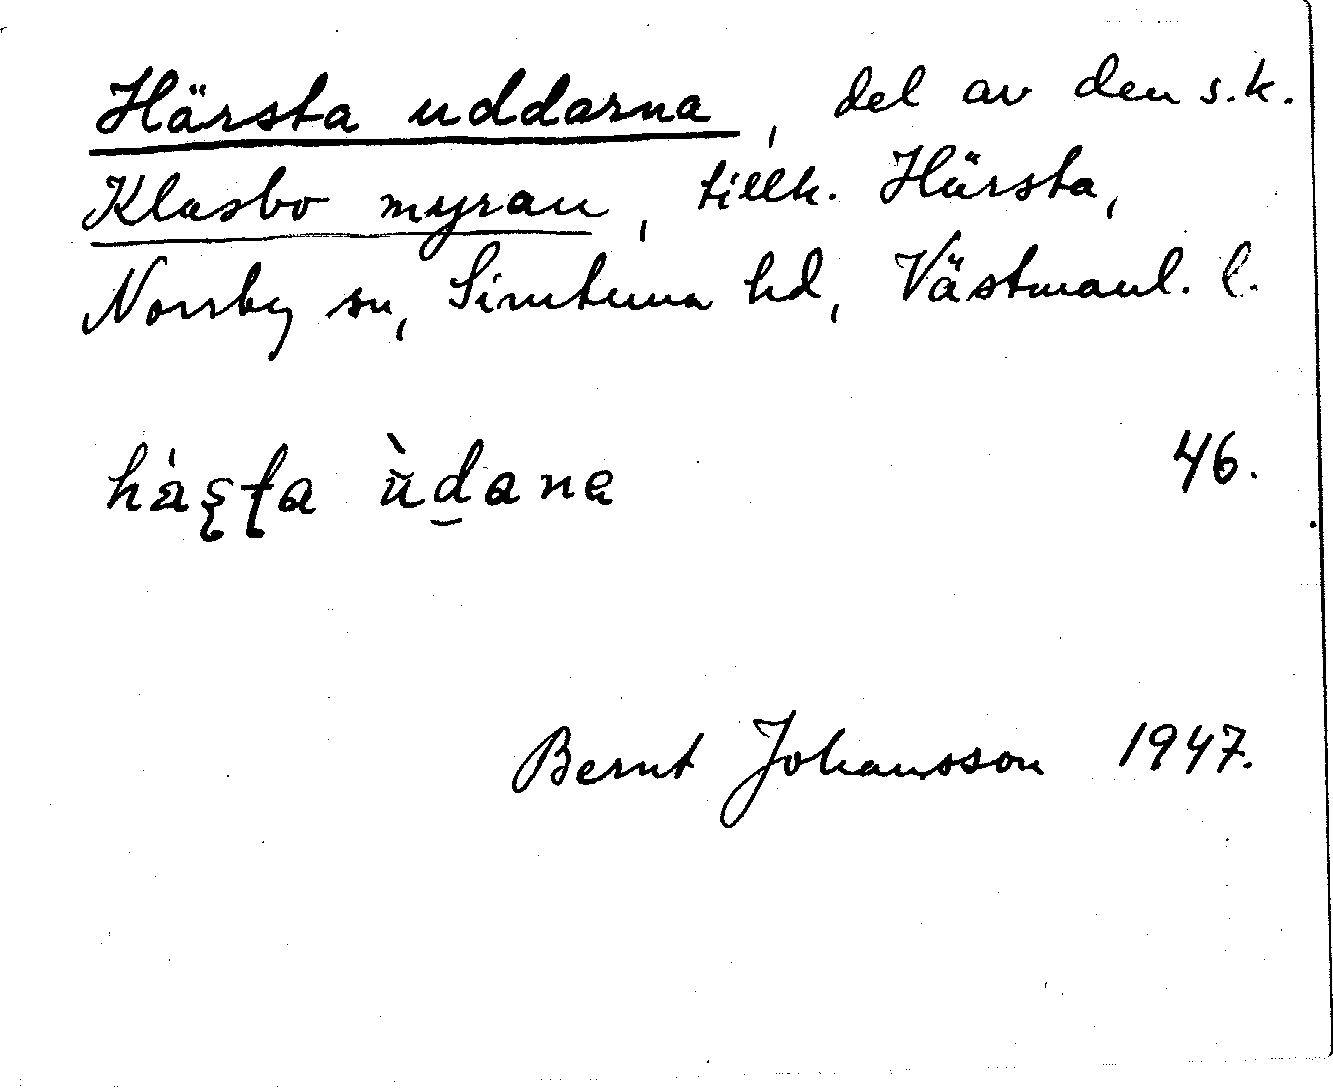 Härsta uddarna, del av den s.k.
Klasbo myran, tillh. Härsta,
Norrby sn, Simtuna hd, Västmanl. l.
46.
Bernt Johansson 1947.